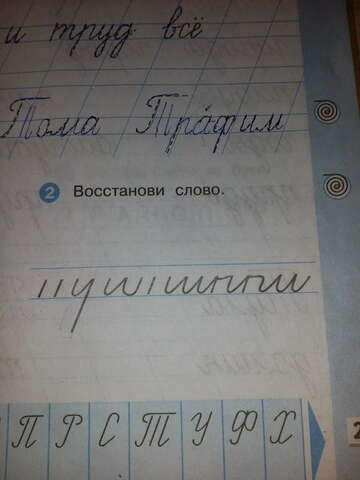 и труд всё
Тома Трафим
2 Восстанови слово.
П Р С Т У Ф Х
2